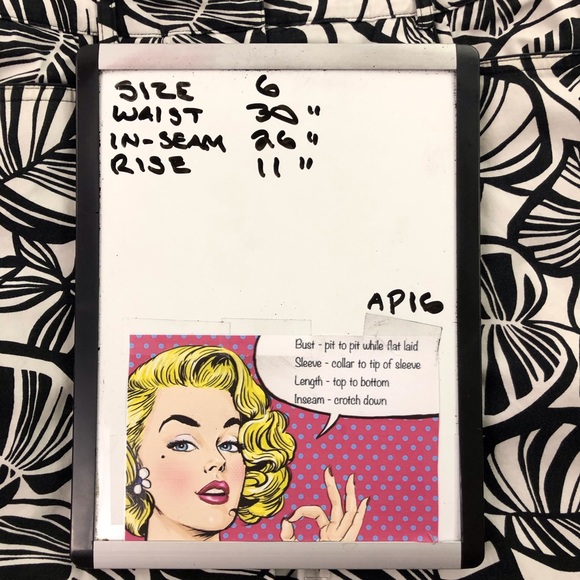 SIZE 6
WAIST 30"
IN-SEAM 26"
RISE 11"
AP16
Bust - pit to pit while flat laid
Sleeve - collar to tip of sleeve
Length - top to bottom
Inseam - crotch down